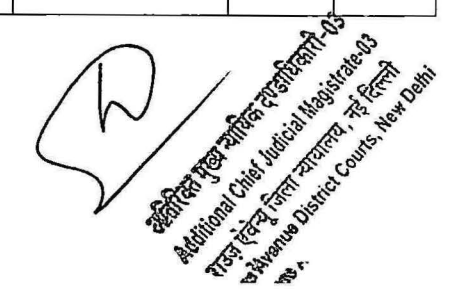 अतिरिक्त मुख्य न्यायिक दण्डाधिकारी-03
Additional Chief Judicial Magistrate-03
राउज़ एवेन्यू जिला न्यायालय, नई दिल्ली
Avenue District Courts, New Delhi